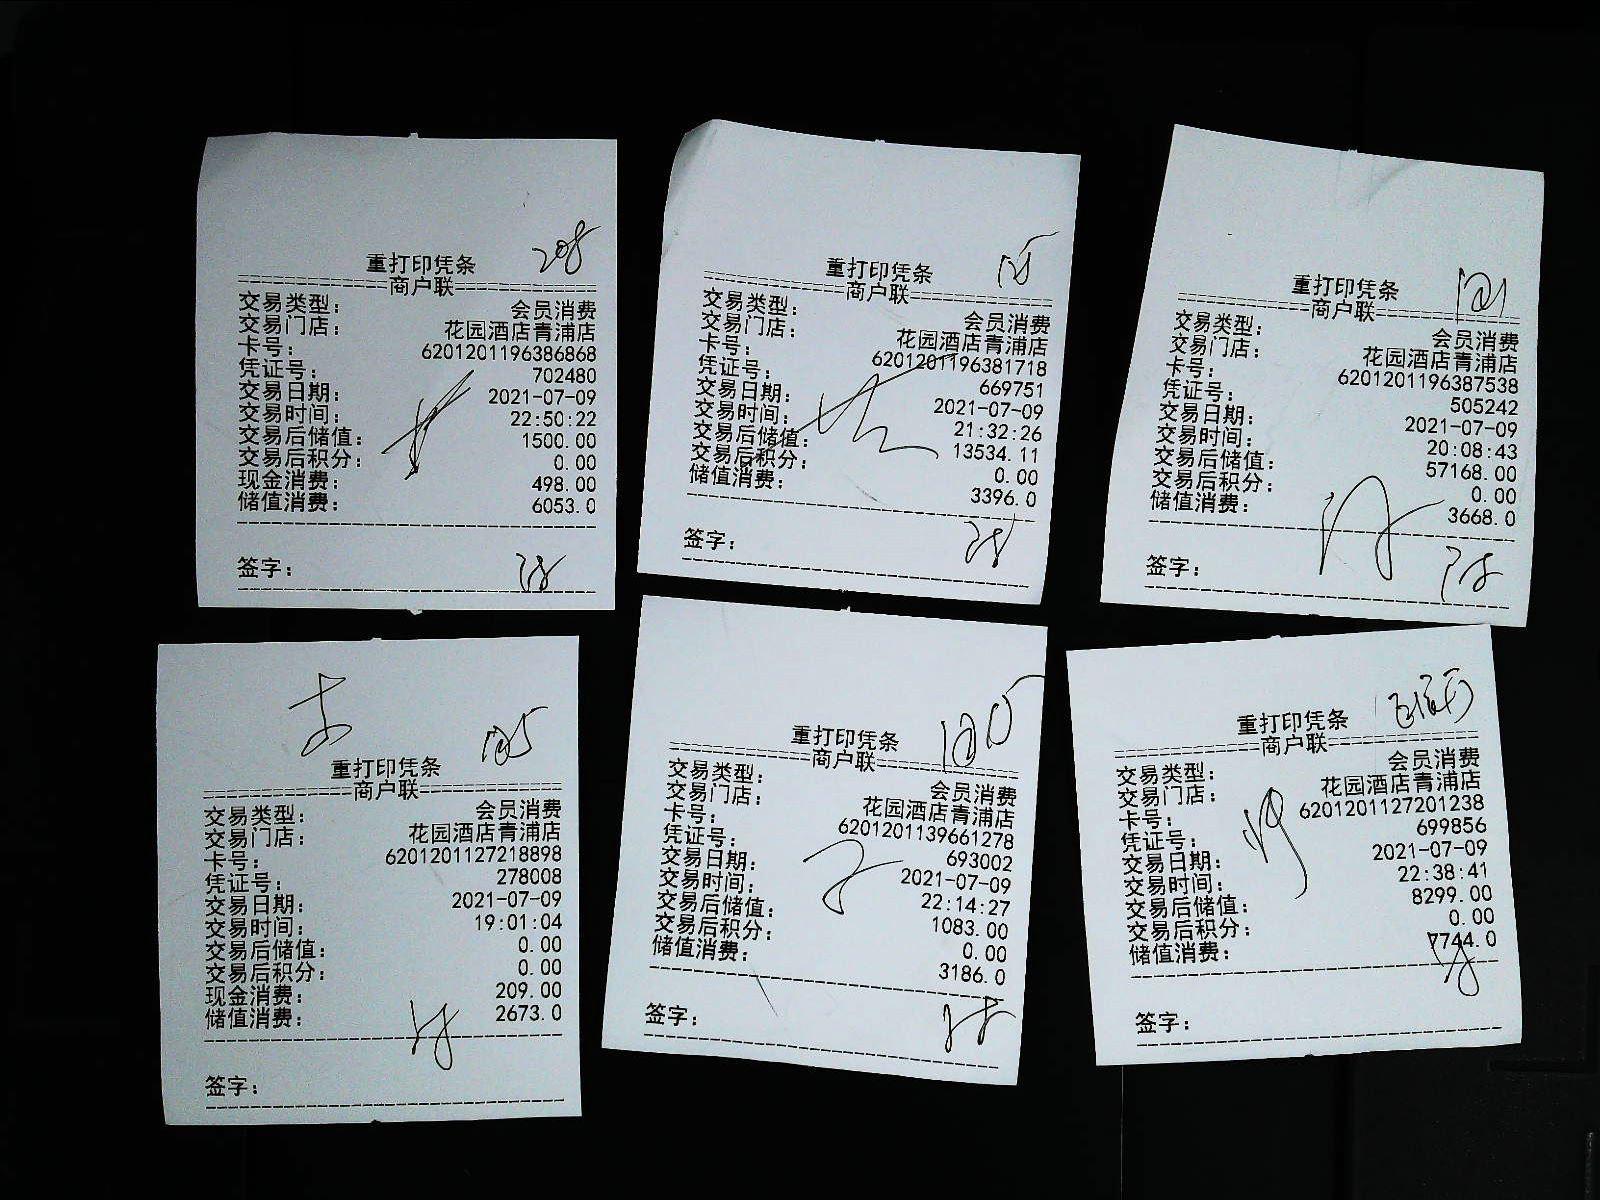 208
重打印凭条
商户联
交易类型： 会员消费
交易门店： 花园酒店青浦店
卡号： 6201201196386868
凭证号： 702480
交易日期： 2021-07-09
交易时间： 22:50:22
交易后储值： 1500.00
交易后积分： 0.00
现金消费： 498.00
储值消费： 6053.0
签字：
重打印凭条
商户联
交易类型： 会员消费
交易门店： 花园酒店青浦店
卡号： 6201201196381718
凭证号： 669751
交易日期： 2021-07-09
交易时间： 21:32:26
交易后储值： 13534.11
交易后积分： 0.00
储值消费： 3396.0
签字：
重打印凭条
商户联
交易类型： 会员消费
交易门店： 花园酒店青浦店
卡号： 6201201196387538
凭证号： 505242
交易日期： 2021-07-09
交易时间： 20:08:43
交易后储值： 57168.00
交易后积分： 0.00
储值消费： 3668.0
签字：
重打印凭条
商户联
交易类型： 会员消费
交易门店： 花园酒店青浦店
卡号： 6201201127218898
凭证号： 278008
交易日期： 2021-07-09
交易时间： 19:01:04
交易后储值： 0.00
交易后积分： 0.00
现金消费： 209.00
储值消费： 2673.0
签字：
重打印凭条
商户联
交易类型： 会员消费
交易门店： 花园酒店青浦店
卡号： 6201201139661278
凭证号： 693002
交易日期： 2021-07-09
交易时间： 22:14:27
交易后储值： 1083.00
交易后积分： 0.00
储值消费： 3186.0
签字：
重打印凭条
商户联
交易类型： 会员消费
交易门店： 花园酒店青浦店
卡号： 6201201127201238
凭证号： 699856
交易日期： 2021-07-09
交易时间： 22:38:41
交易后储值： 8299.00
交易后积分： 0.00
储值消费： 7744.0
签字：